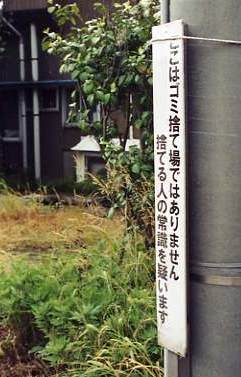 ここはゴミ捨て場ではありません
捨てる人の常識を疑います